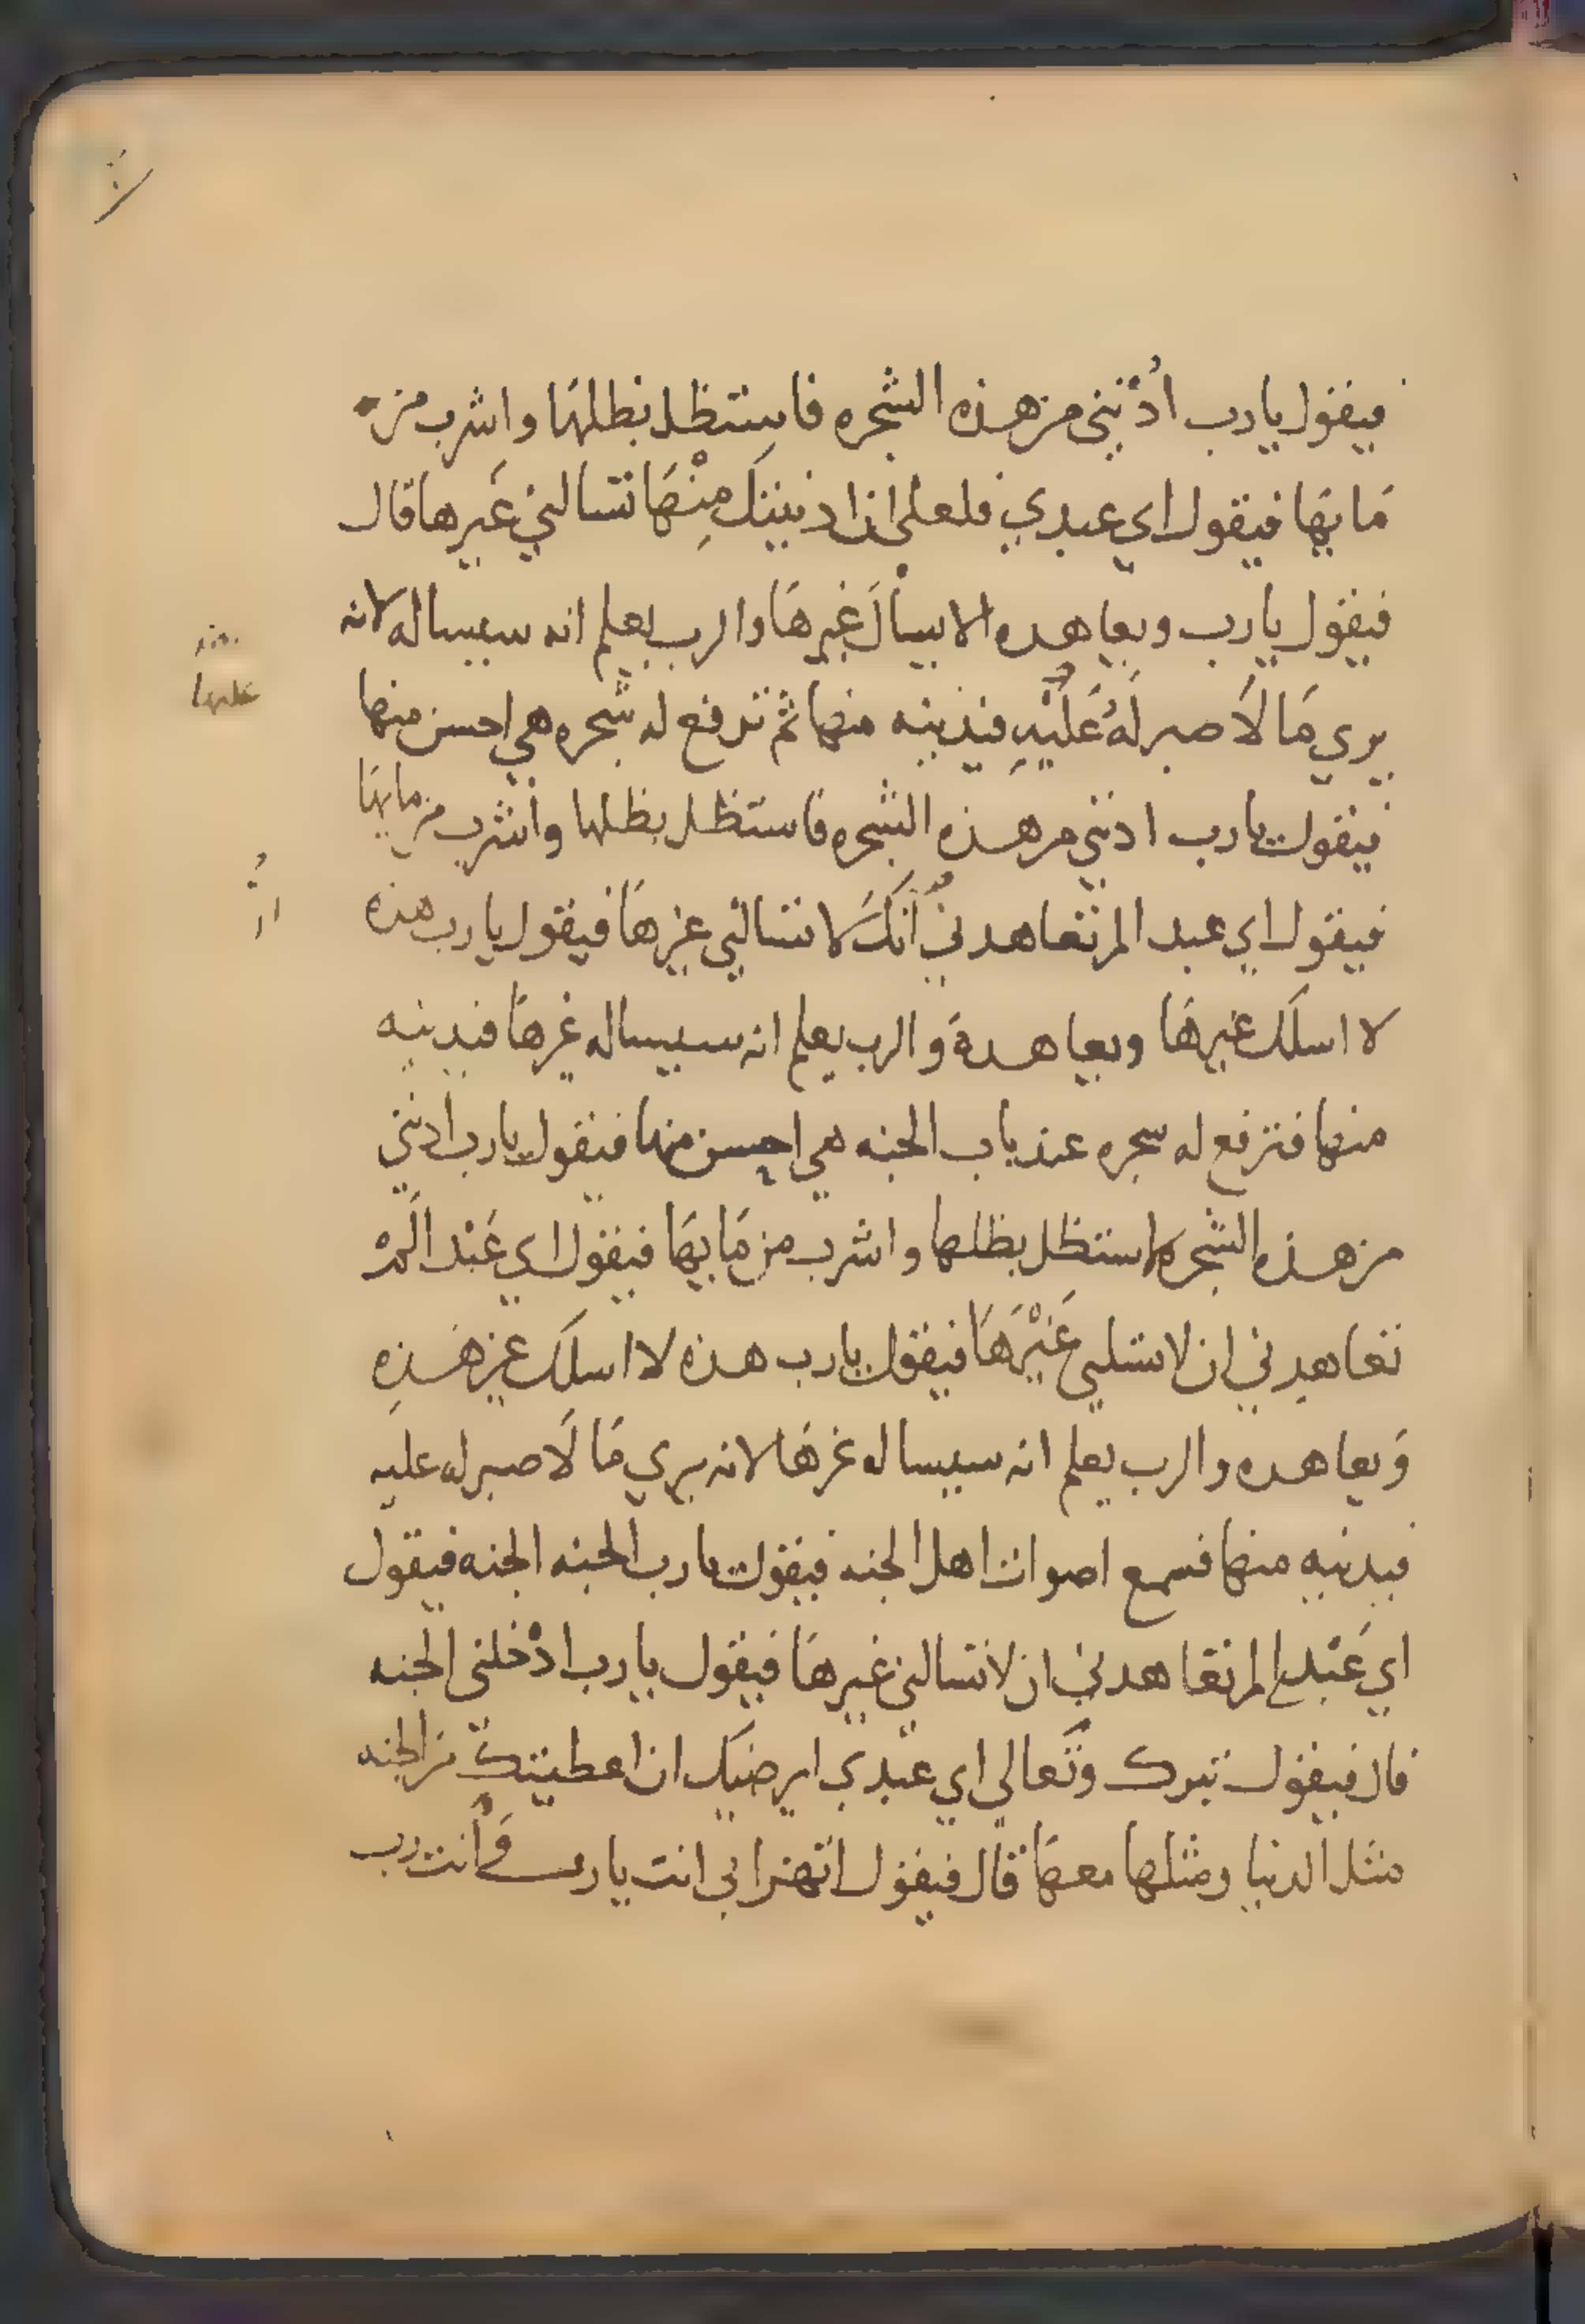 فيقول يا رب اُدْنني من هذه الشجره فاستظل بظلها واشرب من
مَايها فيقول اي عبدي فلعلي ان ادنيتك مِنْهَا تسالني غَيرها قال
فيقول يا رب ويعاهده الا يسأل غيرهَا والرب يعلم انه سيساله لانه
يري مَا لَا صبر لَهُ عَليْهِ فيدنيه منها ثم ترفع له شجره هي احسن منها
فيقول يا رب ادنني من هذه الشجره فاستظل بظلها واشرب من مايها
فيقول اي عبد الم تعاهدني أنكَ لا تسالني غيرهَا فيقول يا رب هذه
لا اسلك غيرهَا ويعاهدة وَالرب يعلم انه سيساله غيرهَا فيدنيه
منها فترفع له سجره عند باب الجنه هي احسن منها فيقول يا رب ادنني
من هذه الشجره استظل بظلها واشرب من مَايهَا فيقول اي عَبْد الَمْ
تعاهدني ان لا تسلني غَيْرَهَا فيقول يا رب هذه لا اسلك غير هَذِه
وَيعاهده والرب يعلم انه سيساله غيرهَا لانه يري مَا لَا صبر له عليه
فيدنيه منها فسمع اصوات اهل الجنه فيقول يا رب الجنه الجنه فيقول
اي عَبْدي الم تعاهدني ان لا تسالني غيرهَا فيقول يا رب ادْخلني الجنه
قال فيقول تبرك وتَعالي اي عبْدي ايرضيك ان اعطيتك من الجنه
مثل الدنيا ومثلها معهَا قال فيقول اتهزا بي انت يا رب وَأنت رب
عليها